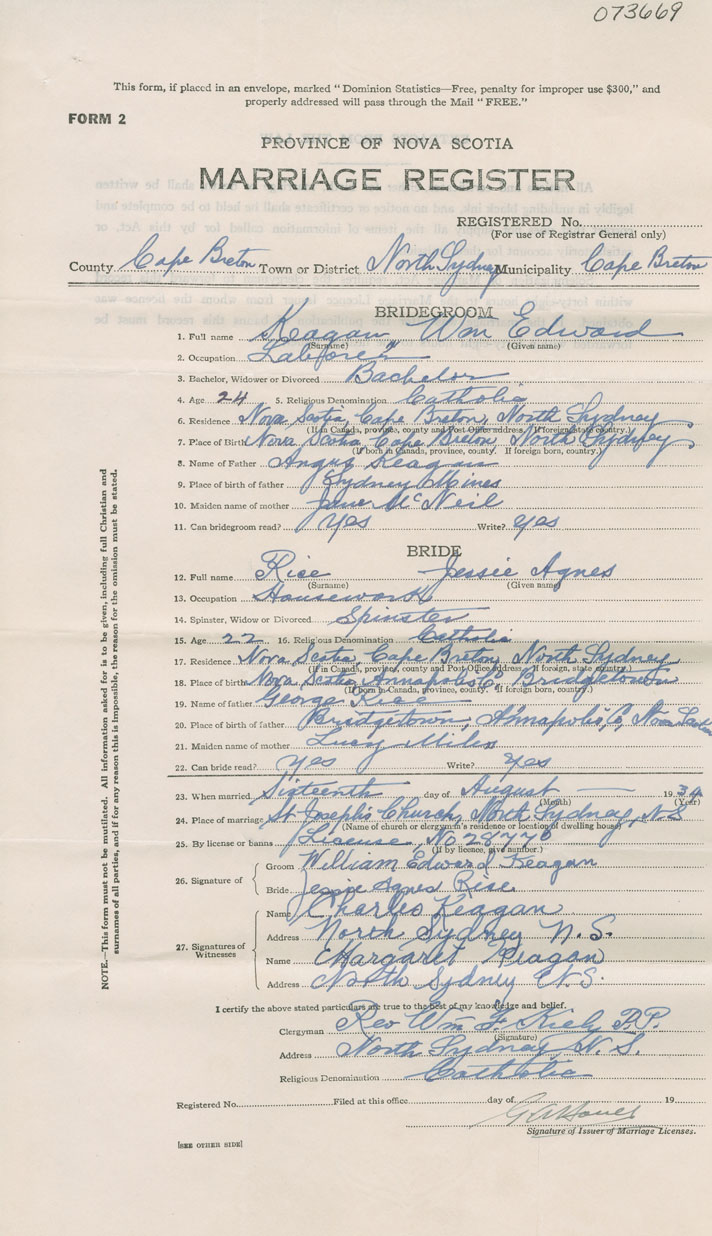 073669
This form, if placed in an envelope, marked "Dominion Statistics—Free, penalty for improper use $300," and
properly addressed will pass through the Mail "FREE."
FORM 2
PROVINCE OF NOVA SCOTIA
MARRIAGE REGISTER
REGISTERED No.
(For use of Registrar General only)
County Cape Breton Town or District North Sydney Municipality Cape Breton
BRIDEGROOM
1. Full name Keagan Wm Edward
(Surname) (Given name)
2. Occupation Laborer
3. Bachelor, Widower or Divorced Bachelor
4. Age 24 5. Religious Denomination Catholic
6. Residence Nova Scotia, Cape Breton, North Sydney
(If in Canada, province, county and Post Office address. If foreign, state country.)
7. Place of Birth Nova Scotia Cape Breton North Sydney
(If born in Canada, province, county. If foreign born, country.)
8. Name of Father Angus Keagan
9. Place of birth of father Sydney Mines
10. Maiden name of mother Jane McNeil
11. Can bridegroom read? Yes Write? Yes
BRIDE
12. Full name Rice Jessie Agnes
(Surname) (Given name)
13. Occupation Housework
14. Spinster, Widow or Divorced Spinster
15. Age 22 16. Religious Denomination Catholic
17. Residence Nova Scotia, Cape Breton, North Sydney
(If in Canada, province, county and Post Office address. If foreign, state country.)
18. Place of birth Nova Scotia, Annapolis Co, Bridgetown
(If born in Canada, province, county. If foreign born, country.)
19. Name of father George Rice
20. Place of birth of father Bridgetown, Annapolis, Co, Nova Scotia
21. Maiden name of mother Lucy Miles
22. Can bride read? Yes Write? Yes
23. When married Sixteenth day of August 1934
(Month) (Year)
24. Place of marriage St Joseph's Church, North Sydney, N.S
(Name of church or clergyman's residence or location of dwelling house)
25. By license or banns License, No 28770
(If by licence, give number.)
26. Signature of Groom William Edward Keagan
Bride Jessie Agnes Rice
27. Signatures of Witnesses Name Charles Keagan
Address North Sydney N.S.
Name Margaret Keagan
Address North Sydney N.S.
I certify the above stated particulars are true to the best of my knowledge and belief.
Clergyman Rev Wm F. Kiely P.P.
(Signature)
Address North Sydney, N.S.
Religious Denomination Catholic
Registered No. Filed at this office day of 19
Signature of Issuer of Marriage Licenses.
[SEE OTHER SIDE]
NOTE.—This form must not be mutilated. All information asked for is to be given, including full Christian and
surnames of all parties, and if for any reason this is impossible, the reason for the omission must be stated.